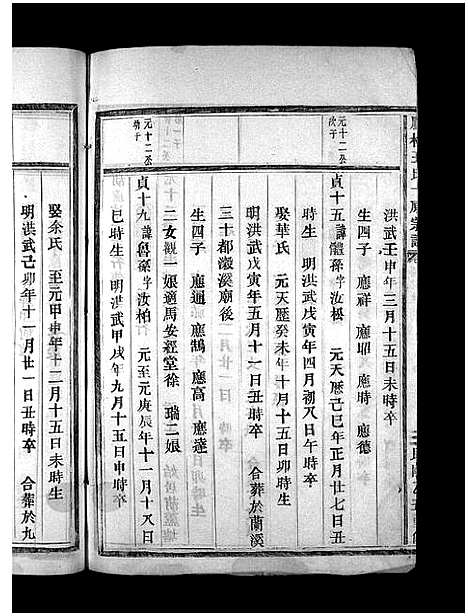 洪武壬申年三月十五日未時卒
生四子 應祥 應聀 應時 應德
元十二公
次子
貞十五 諱體孫 字汝松 元天歷己巳年正月廿七日丑
時生 明洪武戊寅年四月初八日午時卒
娶華氏 元天歷癸未年十月十五日卯時生
明洪武戊寅年五月十一日丑時卒 合葬於蘭溪
三十都瀫溪廟後
生四子 應通 應鵠 應高 應達
二女觀一娘適馬安經堂徐 瑞二娘
元十二公
幼子
貞十九 諱魯孫 字汝柏 元至元庚辰年十一月十八日
巳時生 明洪武甲戌年九月十五日申時卒
娶余氏 至元甲申年十二月十五日未時生
明洪武己卯年十一月廿一日丑時卒 合葬於九